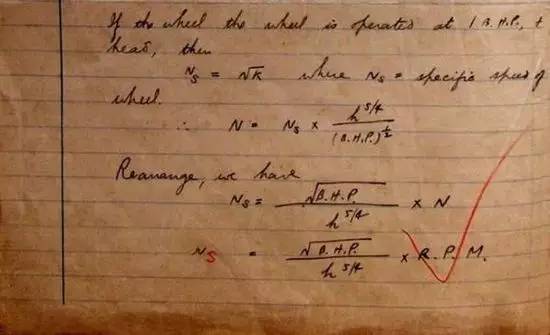 If the wheel the wheel is operated at 1 B.H.P., +
head, then
N_S = √K where N_S = specific speed of
wheel.
∴ N = N_S × h^{5/4} / (B.H.P.)^{1/2}
Rearrange, we have
N_S = √B.H.P. / h^{5/4} × N
N_S = √B.H.P. / h^{5/4} × R.P.M.